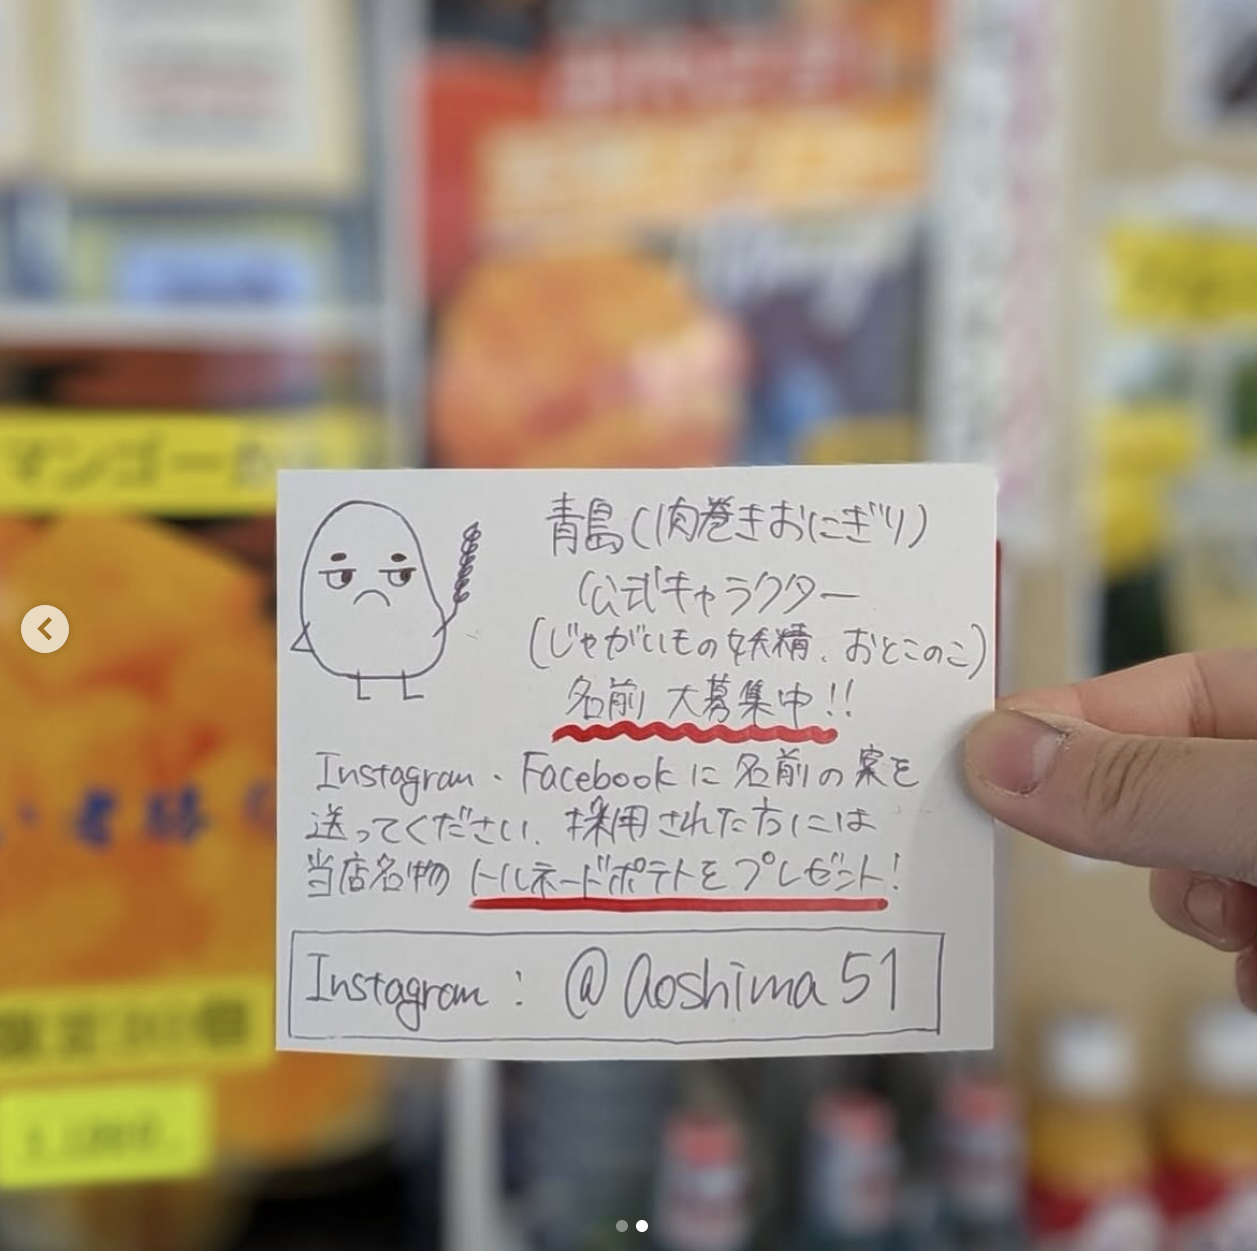 青島(肉巻きおにぎり)
公式キャラクター
(じゃがいもの妖精、おとこのこ)
名前 大募集中!!
Instagram、Facebookに名前の案を
送ってください。採用された方には
当店名物 トルネードポテトをプレゼント!
Instagram : @aoshima51
マンゴー